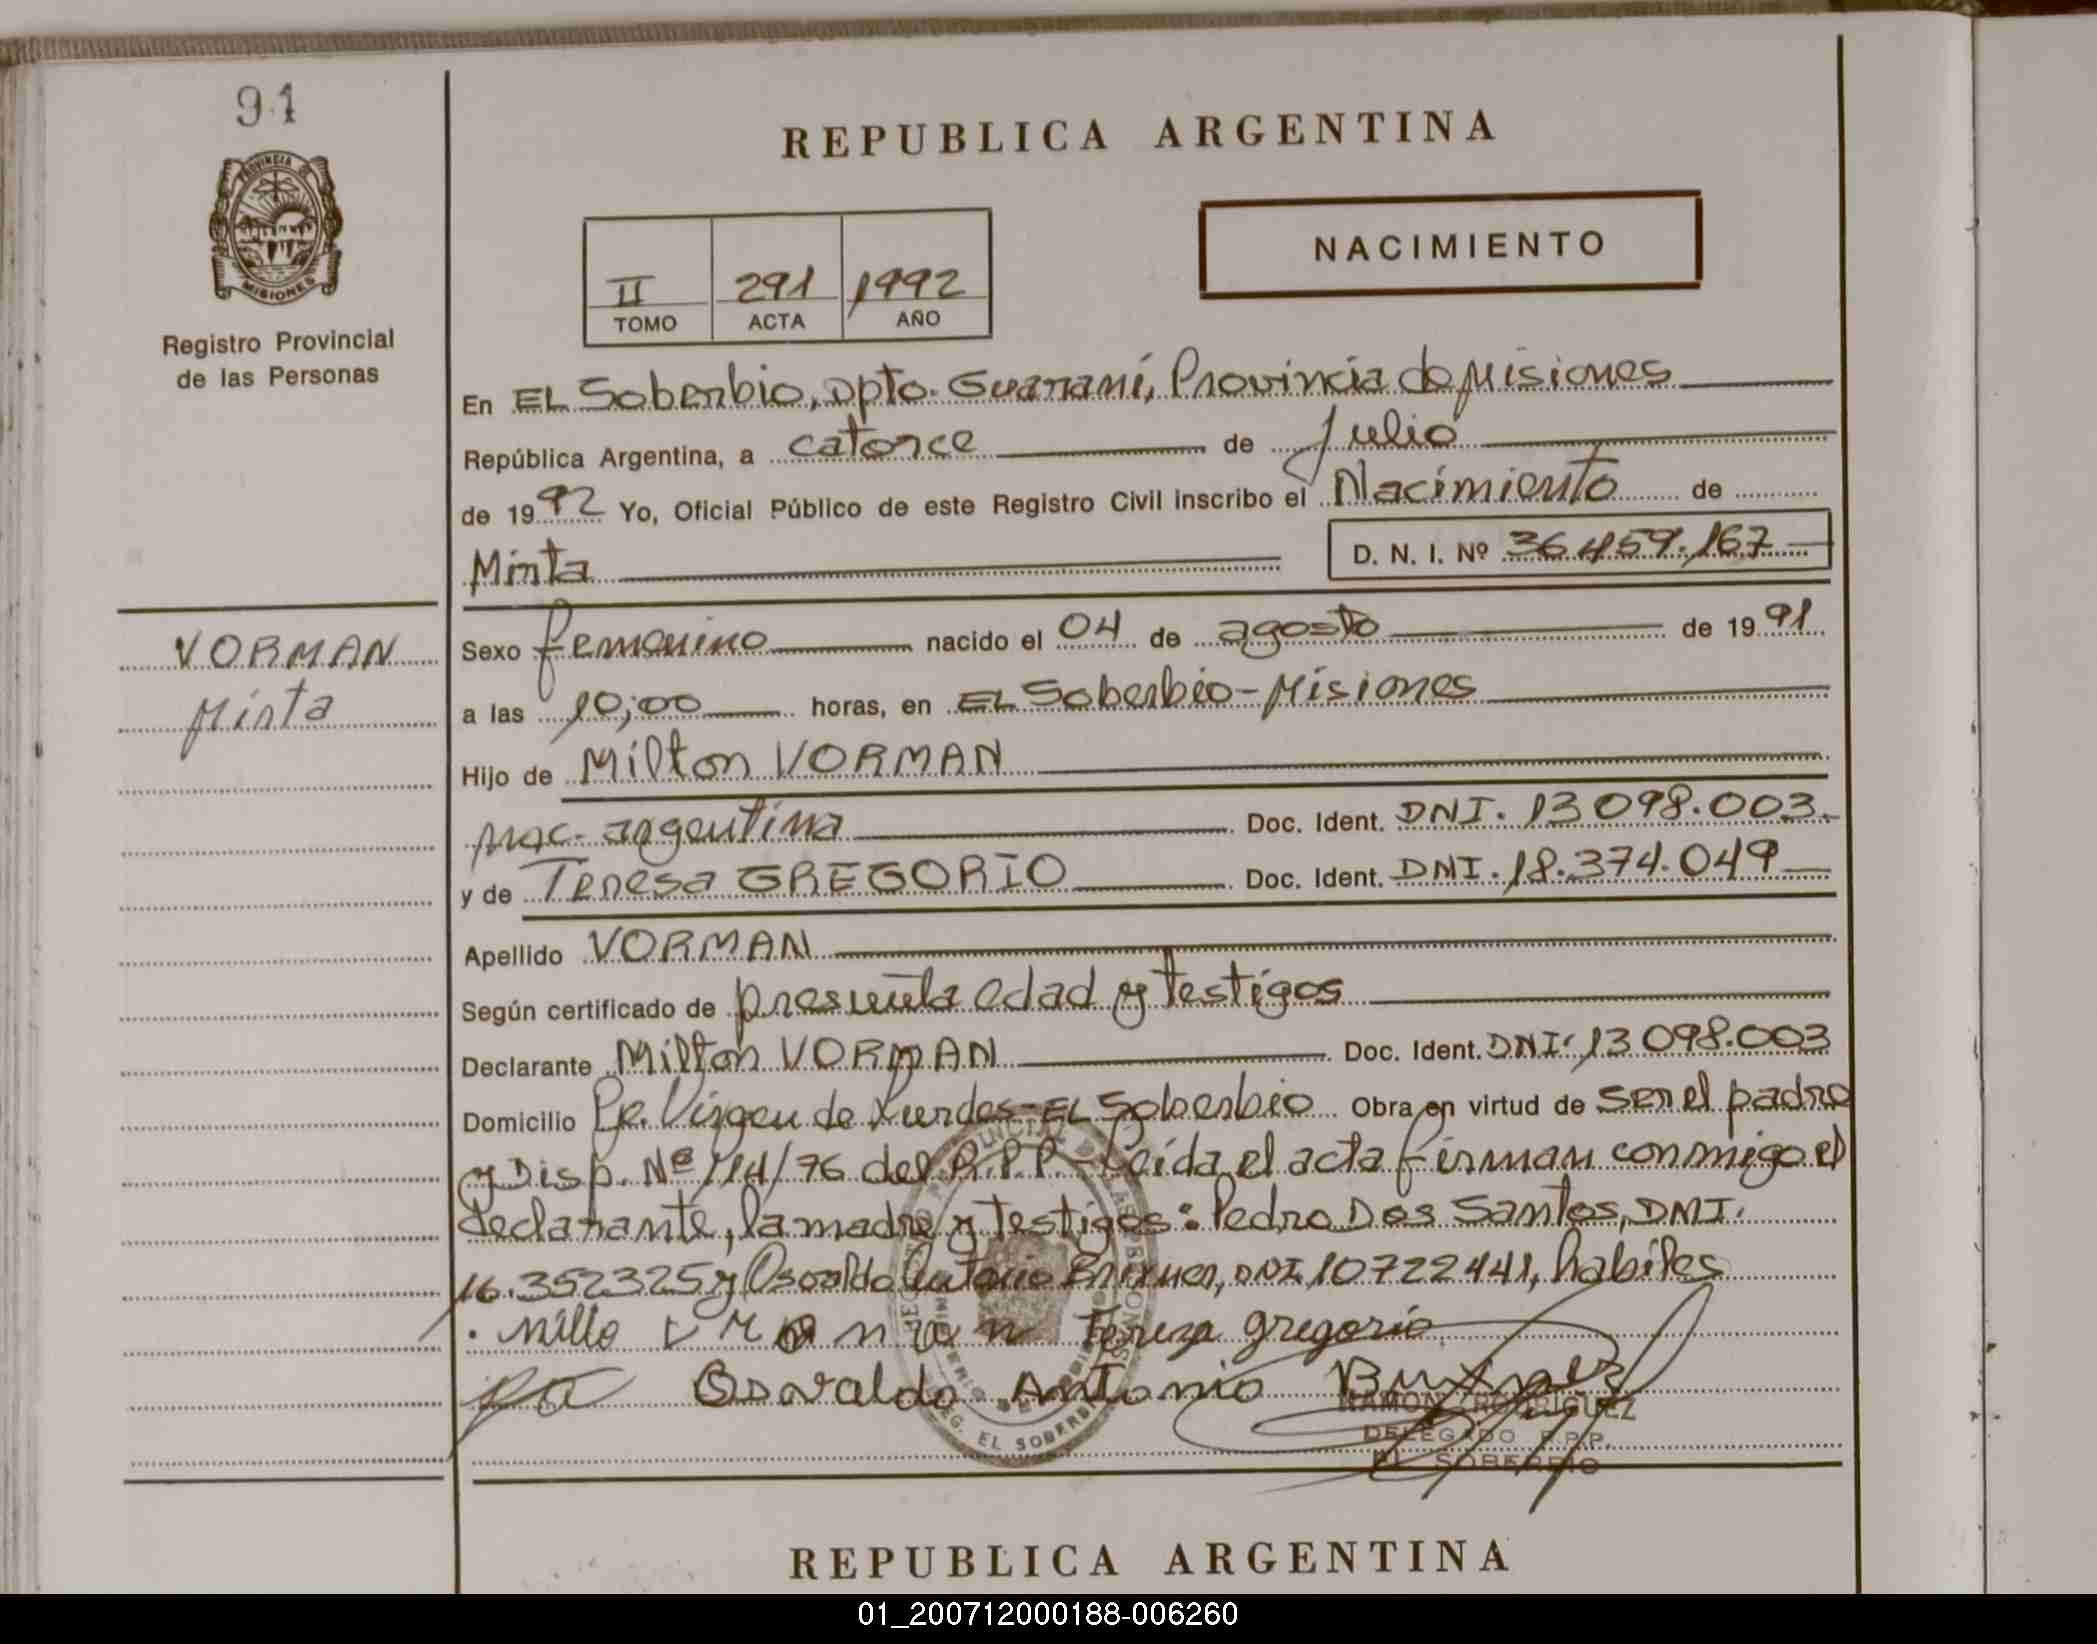 91
PROVINCIA DE
MISIONES
Registro Provincial
de las Personas
REPUBLICA ARGENTINA
NACIMIENTO
II 291 1992
TOMO ACTA AÑO
En EL Soberbio, Dpto. Guaraní, Provincia de Misiones
República Argentina, a catorce de Julio
de 1992 Yo, Oficial Público de este Registro Civil inscribo el Nacimiento de
Mirta D. N. I. Nº 36.459.167
VORMAN
Mirta
Sexo femenino nacido el 04 de agosto de 1991
a las 10;00 horas, en EL Soberbio-Misiones
Hijo de Milton VORMAN
nac. argentina Doc. Ident. DNI. 13 098.003.
y de Teresa GREGORIO Doc. Ident. DNI. 18.374.049
Apellido VORMAN
Según certificado de presunta edad y testigos
Declarante Milton VORMAN Doc. Ident. DNI. 13 098.003
Domicilio Pje. Virgen de Lurdes-EL Soberbio Obra en virtud de ser el padre
y Disp. Nº 114/76 del R.P.P.-Leída el acta firman conmigo el
declarante, la madre y testigos: Pedro Dos Santos, DNI.
16.352325 y Osvaldo Antonio Brixner, DNI 10722441, habiles
Tereza gregorio
Osvaldo Antonio
RAMON RODRIGUEZ
DELEGADO R.P.P.
EL SOBERBIO
DELEG. EL SOBERBIO
REPUBLICA ARGENTINA
01_200712000188-006260